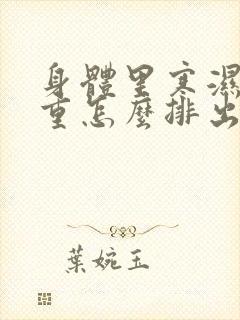 身體里寒濕
重怎麼排出
葉婉玉